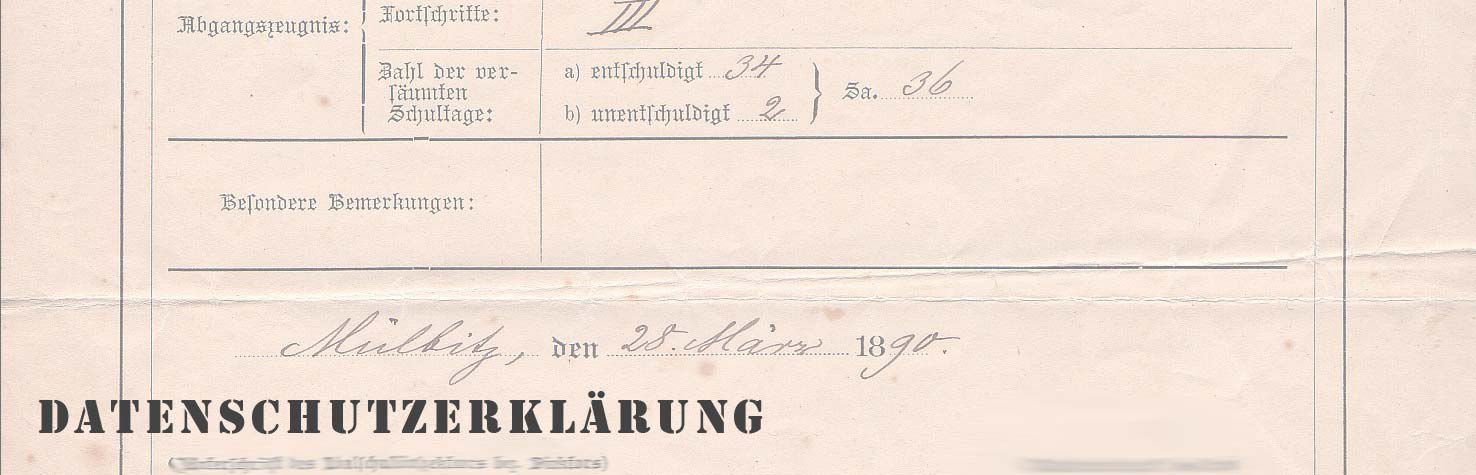 Abgangszeugnis:
Fortschritte: III
Zahl der ver-
säumten
Schultage:
a) entschuldigt 34
b) unentschuldigt 2
Sa. 36
Besondere Bemerkungen:
Mülbitz, den 28. März 1890.
DATENSCHUTZERKLÄRUNG